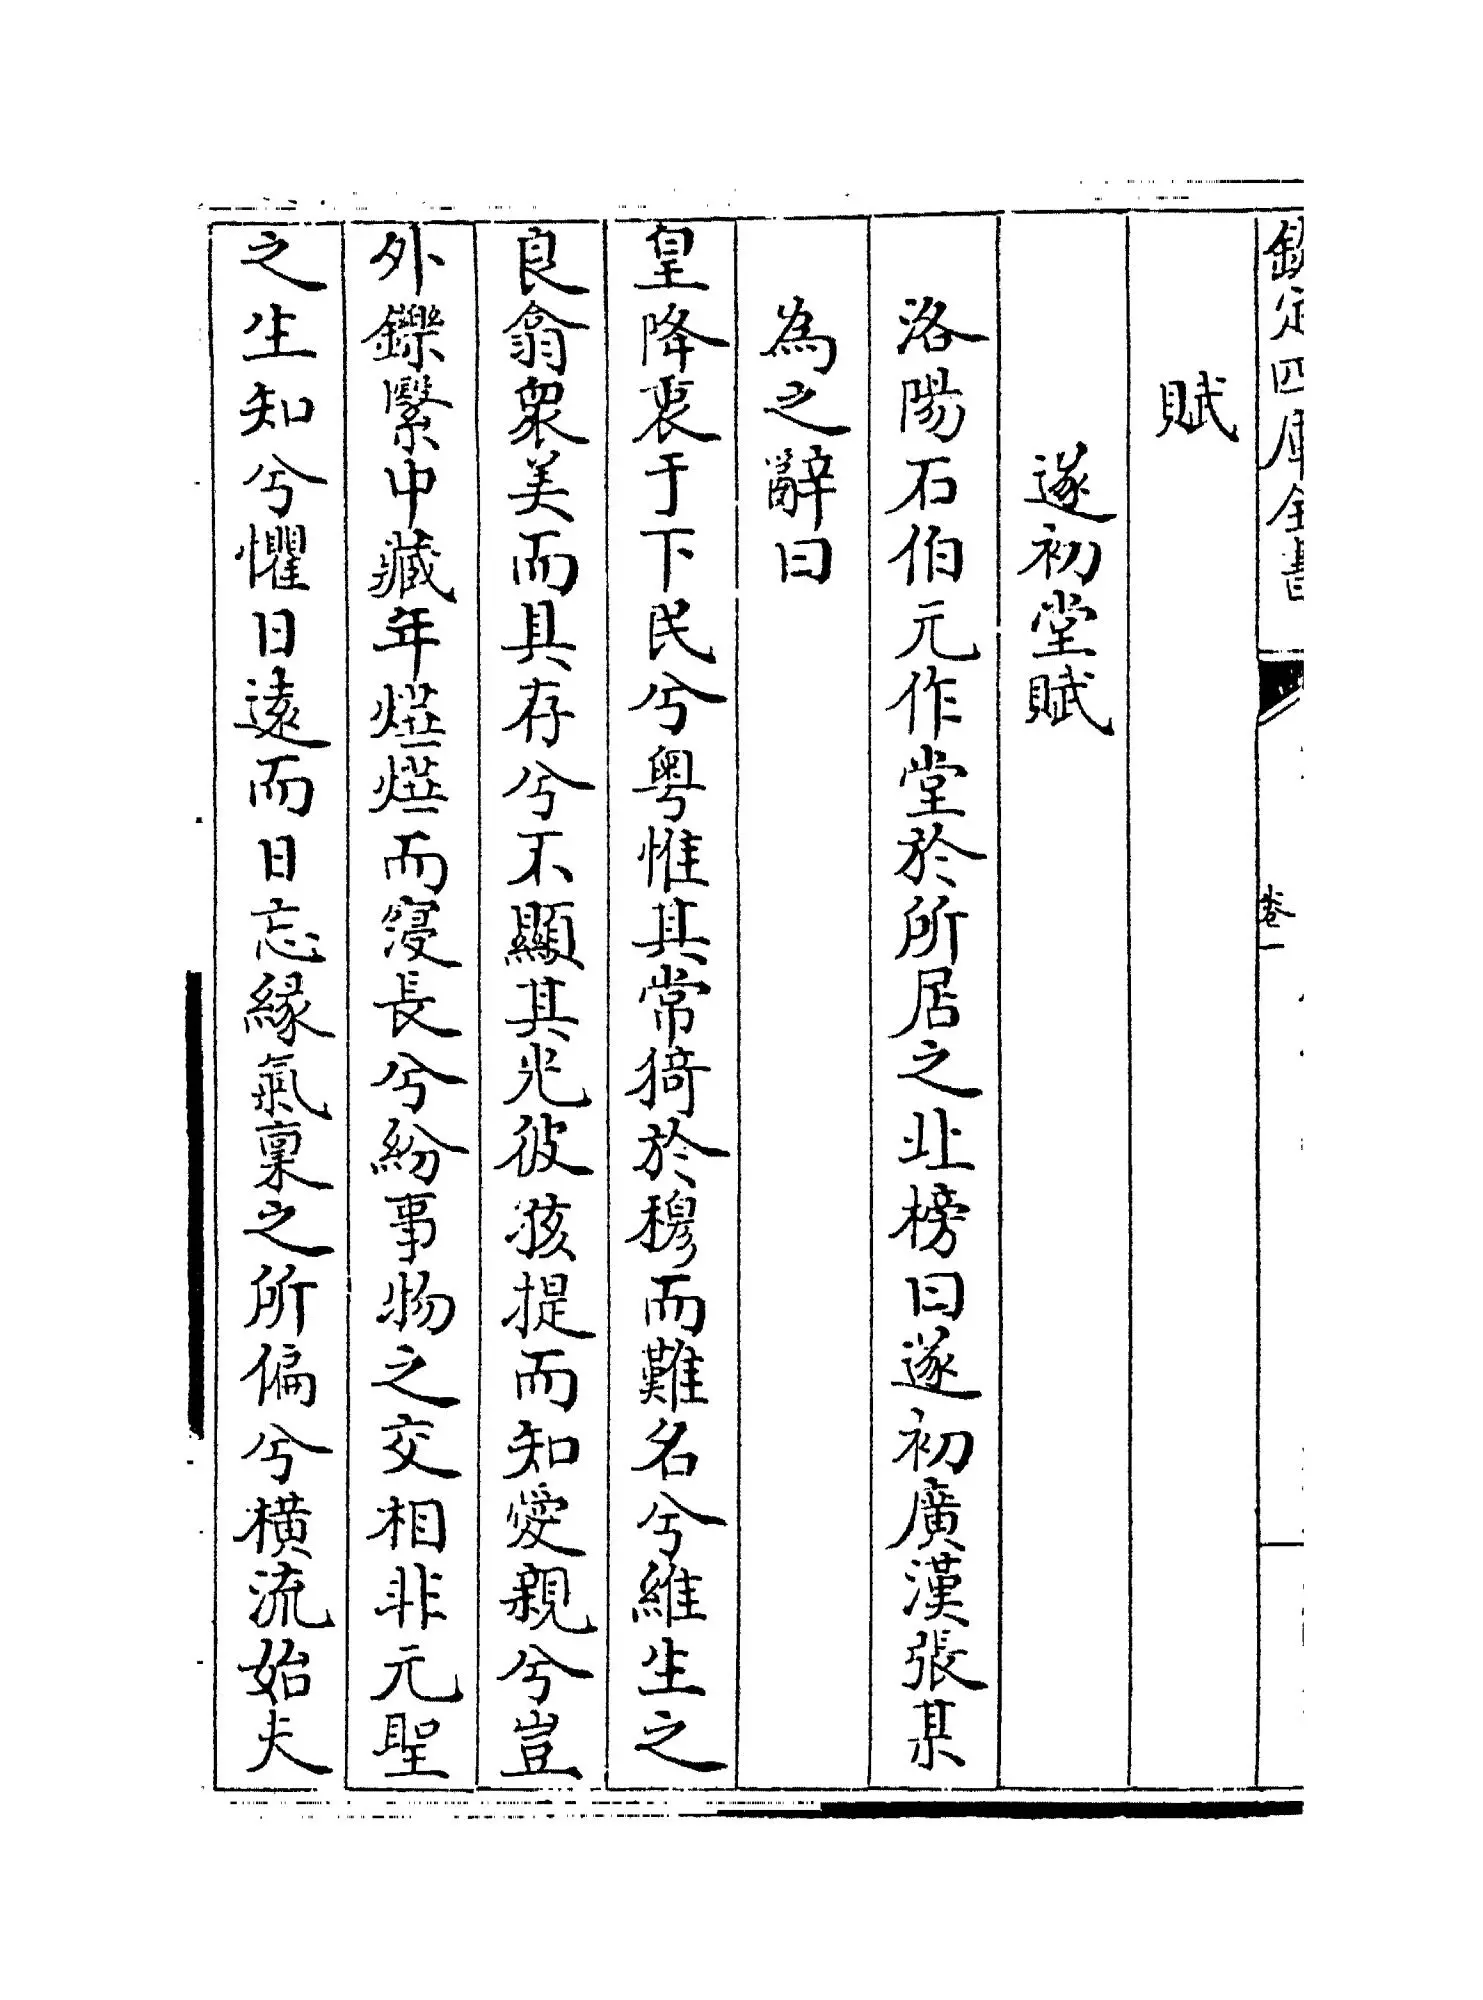 欽定四庫全書
卷一
賦
遂初堂賦
洛陽石伯元作堂於所居之北榜曰遂初廣漢張某
為之辭曰
皇降衷于下民兮粤惟其常猗於穆而難名兮維生之
良翕衆美而具存兮不顯其光彼孩提而知愛親兮豈
外鑠繄中藏年燁燁而寖長兮紛事物之交相非元聖
之生知兮懼日遠而日忘緣氣稟之所偏兮橫流始夫